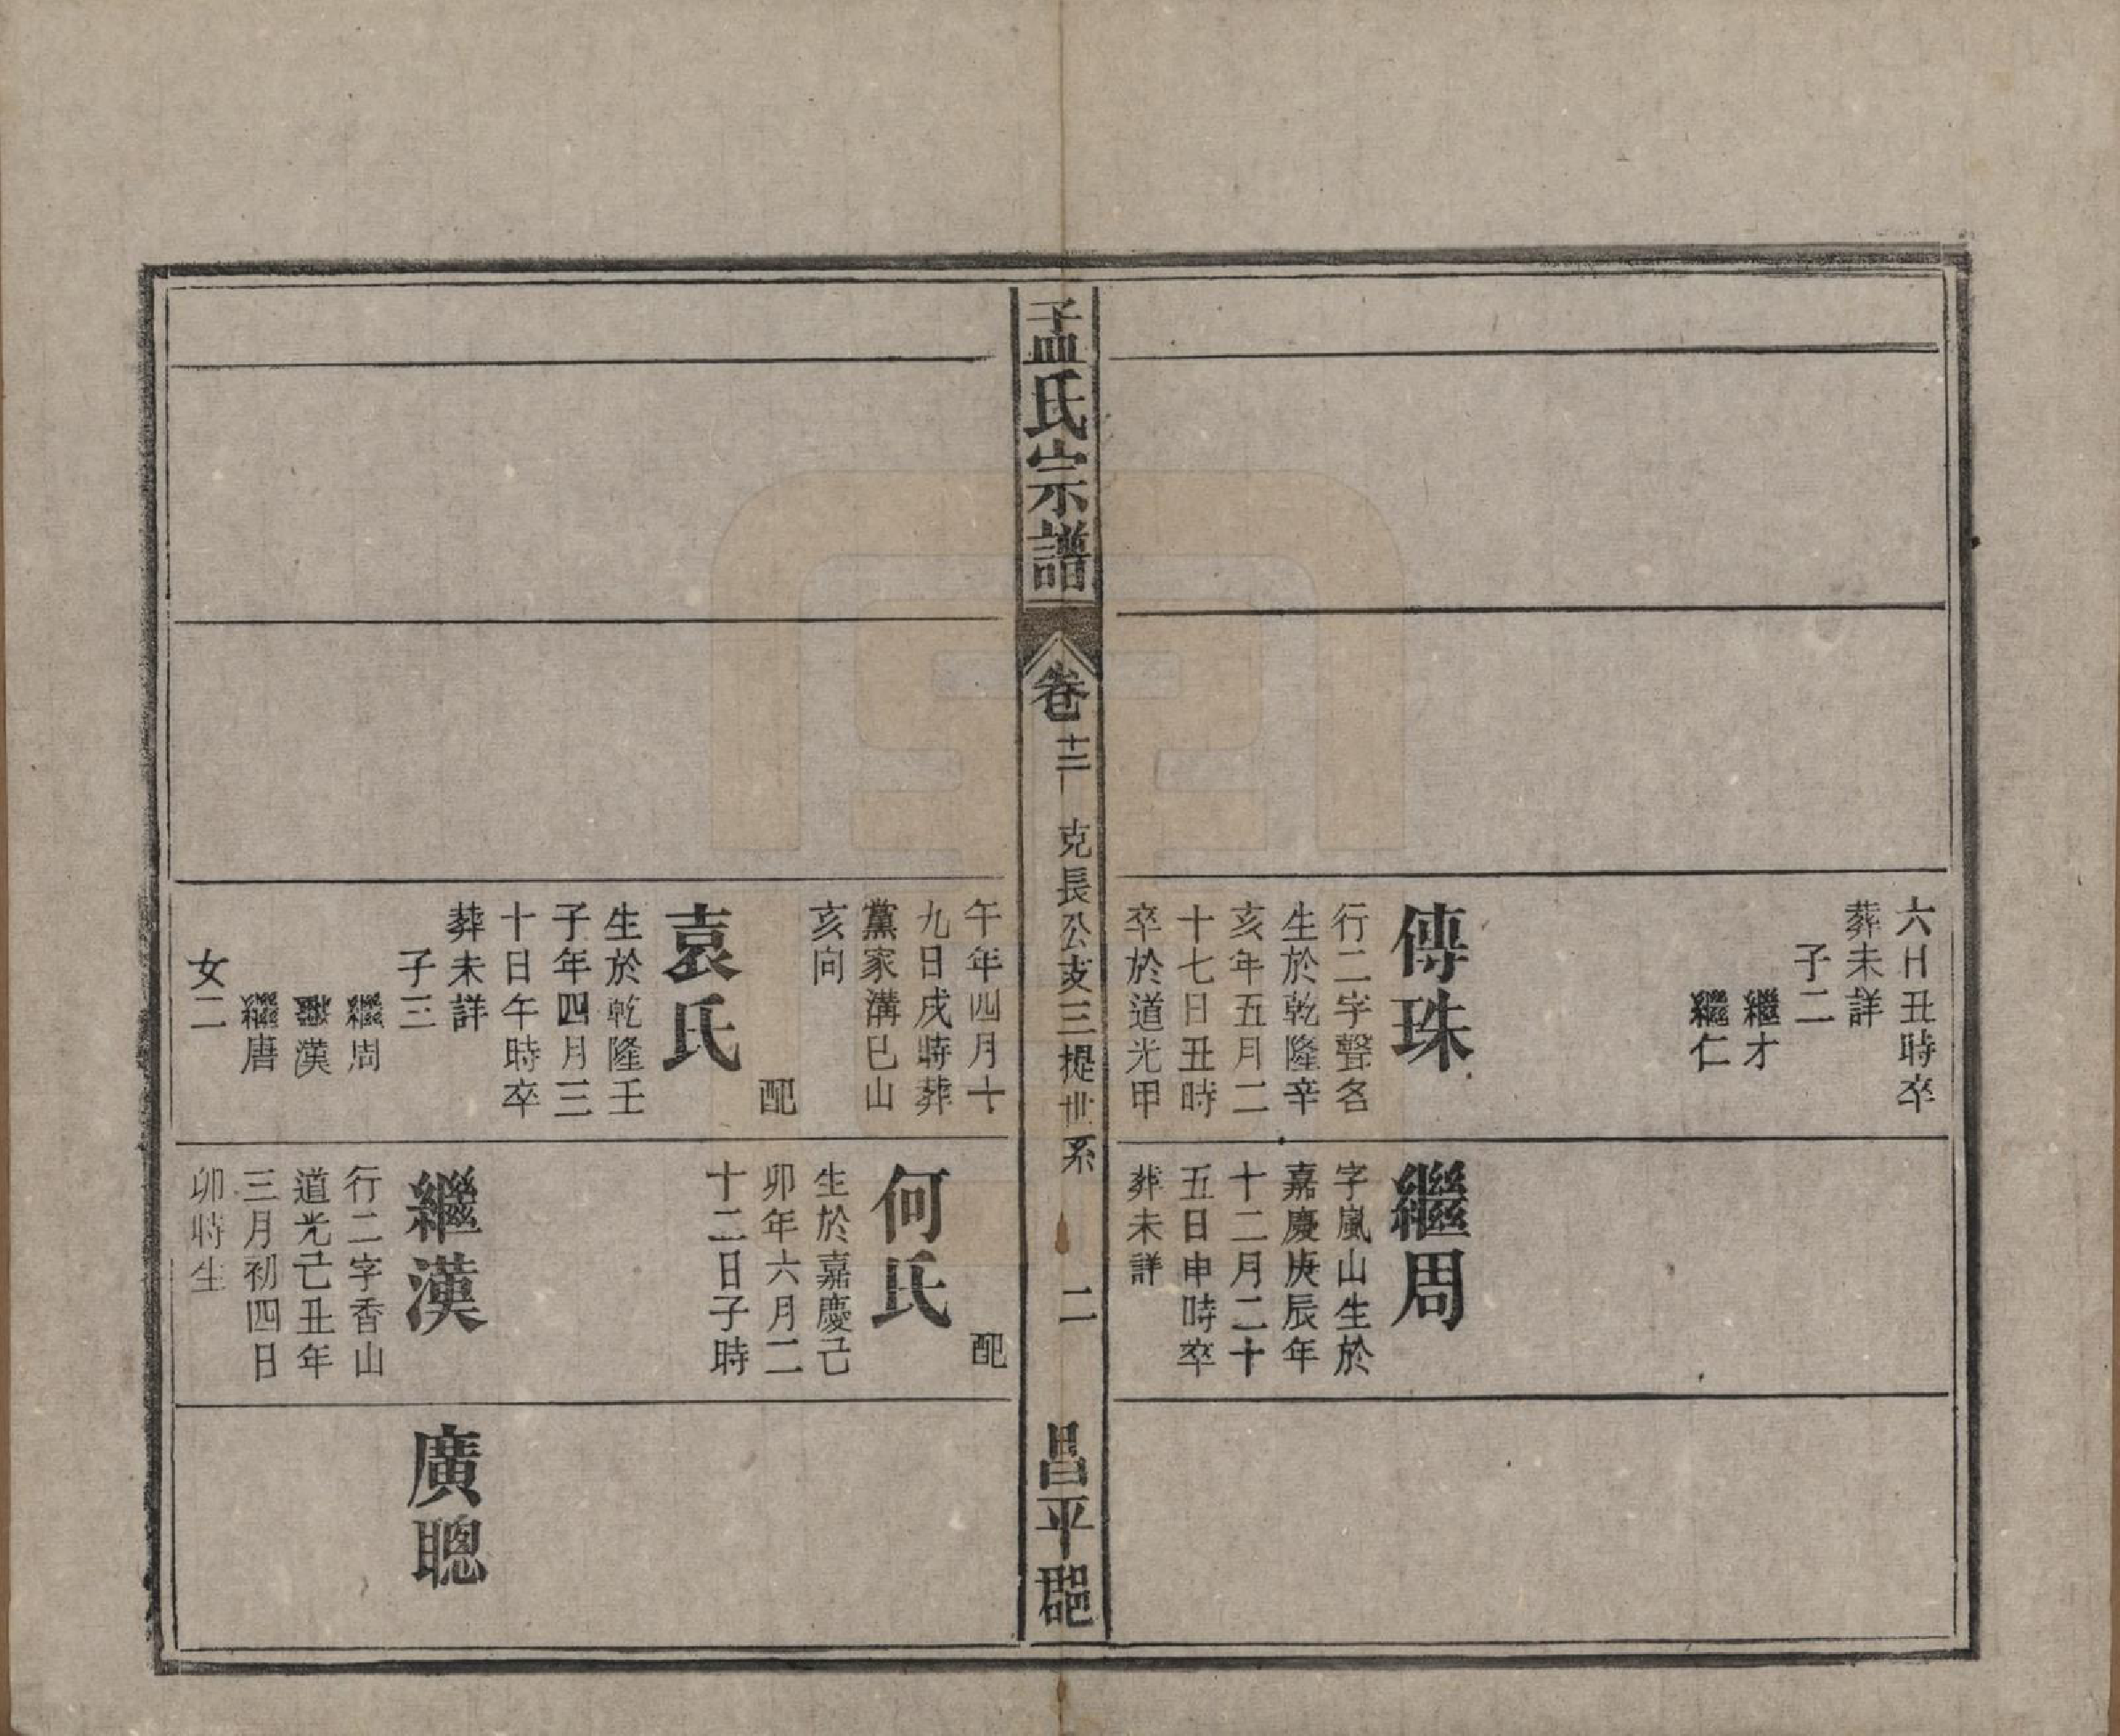 六日丑時卒
葬未詳
子二
繼才
繼仁
傳珠
行二字聲名
生於乾隆辛
亥年五月二
十七日丑時
卒於道光甲
繼周
字嵐山生於
嘉慶庚辰年
十二月二十
五日申時卒
葬未詳
孟氏宗譜
卷十三
克長公支三提世系
二
昌平郡
午年四月十
九日戌時葬
黨家溝巳山
亥向
配
袁氏
生於乾隆壬
子年四月三
十日午時卒
葬未詳
子三
繼周
繼漢
繼唐
女二
配
何氏
生於嘉慶己
卯年六月二
十二日子時
繼漢
行二字香山
道光己丑年
三月初四日
卯時生
廣聰